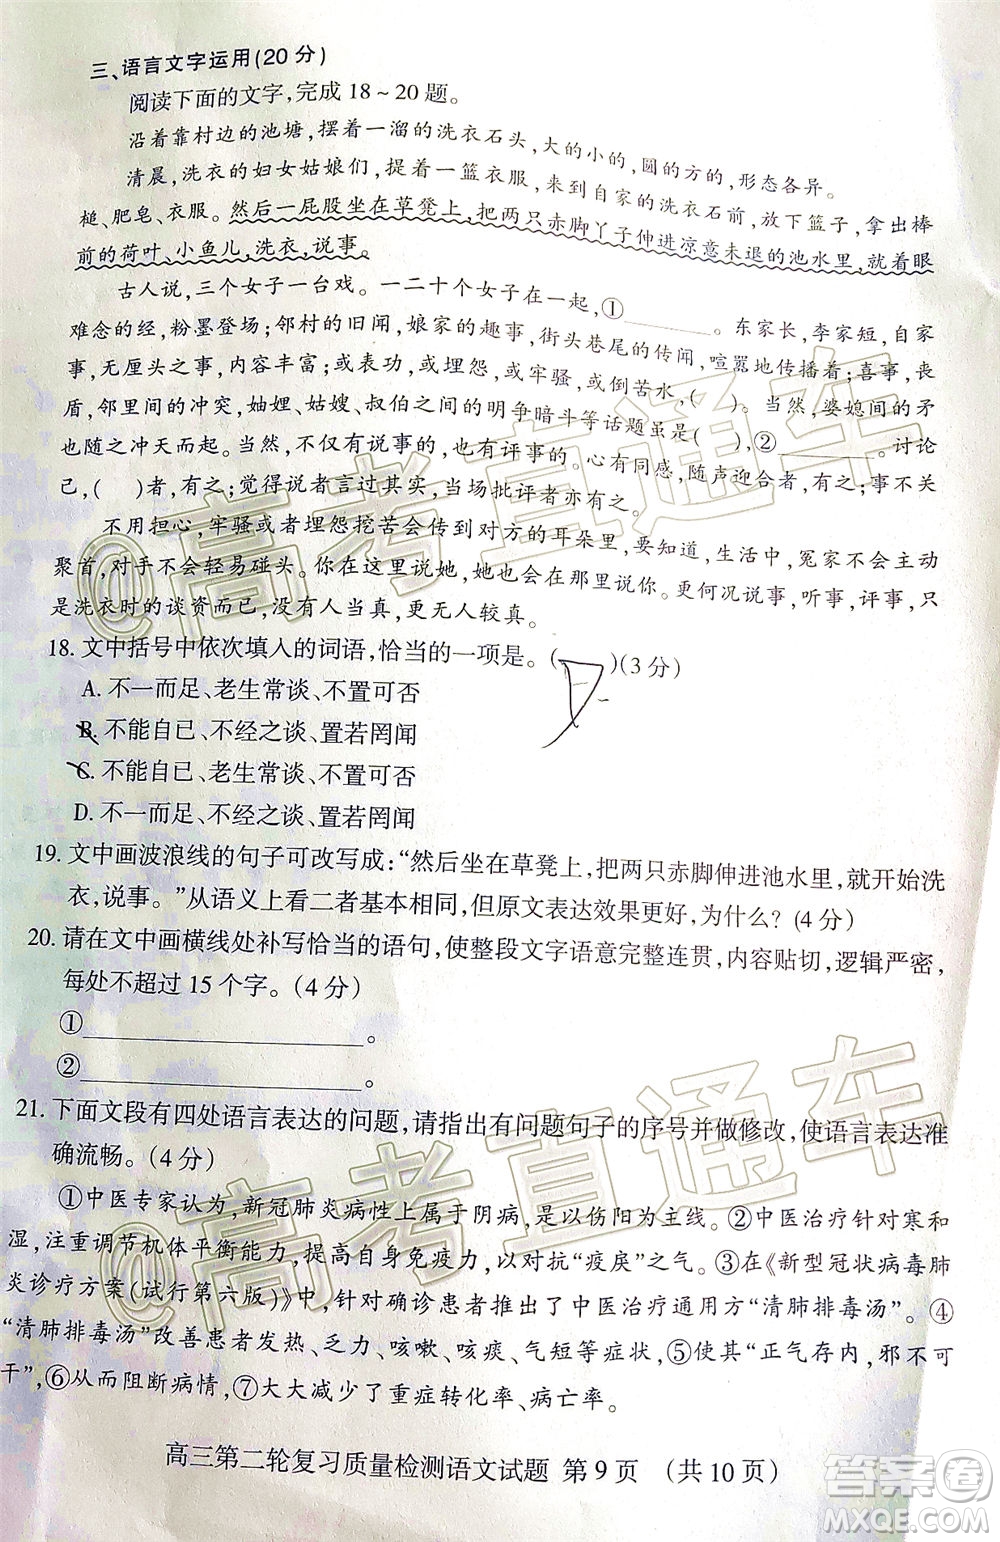 三、语言文字运用(20 分)
阅读下面的文字,完成 18～20 题。
沿着靠村边的池塘,摆着一溜的洗衣石头,大的小的,圆的方的,形态各异。
清晨,洗衣服的妇女姑娘们,提着一篮衣服,来到自家的洗衣石前,放下篮子,拿出棒
槌、肥皂、衣服。然后一屁股坐在草凳上,把两只赤脚丫子伸进凉意未退的池水里,就着眼
前的荷叶、小鱼儿,洗衣,说事。
古人说,三个女子一台戏。一二十个女子在一起,①________。东家长,李家短,家家有本
难念的经,粉墨登场;邻村的旧闻,娘家的趣事,街头巷尾的传闻,喧嚣地传播着;喜事,丧
事,无聊之事,内容丰富;或表功,或埋怨,或牢骚,或倒苦水,(　　)。当然,婆媳间的矛
盾,邻里间的冲突,妯娌、姑嫂、叔伯之间的明争暗斗等话题虽是(　　),②________。讨论
也随之冲天而起。当然,不仅有说事的,也有听事的、评事的。心有同感,随声迎合者,有之;事不关
己,(　　)者,有之;觉得说者言过其实,当场批评者亦有之。
不用担心,牢骚或者埋怨挖苦会传到对方的耳朵里,要知道,生活中,冤家不会主动
聚首,对手不会轻易碰头。你在这里说她,她也会在那里说你。更何况说事,听事,评事,只
是洗衣时的谈资而已,没有人当真,更无人较真。
18. 文中括号中依次填入的词语,恰当的一项是。(　　)(3 分)
A. 不一而足、老生常谈、不置可否
B. 不能自已、不经之谈、置若罔闻
C. 不能自已、老生常谈、不置可否
D. 不一而足、不经之谈、置若罔闻
19. 文中画波浪线的句子可改写成:“然后坐在草凳上,把两只赤脚伸进池水里,就开始洗
衣,说事。”从语义上看二者基本相同,但原文表达效果更好,为什么? (4 分)
20. 请在文中画横线处补写恰当的语句,使整段文字语意完整连贯,内容贴切,逻辑严密,
每处不超过 15 个字。(4 分)
①________________。
②________________。
21. 下面文段有四处语言表达的问题,请指出有问题句子的序号并做修改,使语言表达准
确流畅。(4 分)
①中医专家认为,新冠肺炎病性上属于阴病,是以伤阳为主线。②中医治疗针对寒和
湿,注重调节机体平衡能力,提高自身免疫力,以对抗“疫戾”之气。③在《新型冠状病毒肺
炎诊疗方案(试行第六版)》中,针对确诊患者推出了中医治疗通用方“清肺排毒汤”。④
“清肺排毒汤”改善患者发热、乏力、咳嗽、咳痰、气短等症状,⑤使其“正气存内,邪不可
干”,⑥从而阻断病情,⑦大大减少了重症转化率、病亡率。
高三第二轮复习质量检测语文试题 第 9 页 (共 10 页)
@高考直通车
@高考直通车
答案圈
MXQE.COM